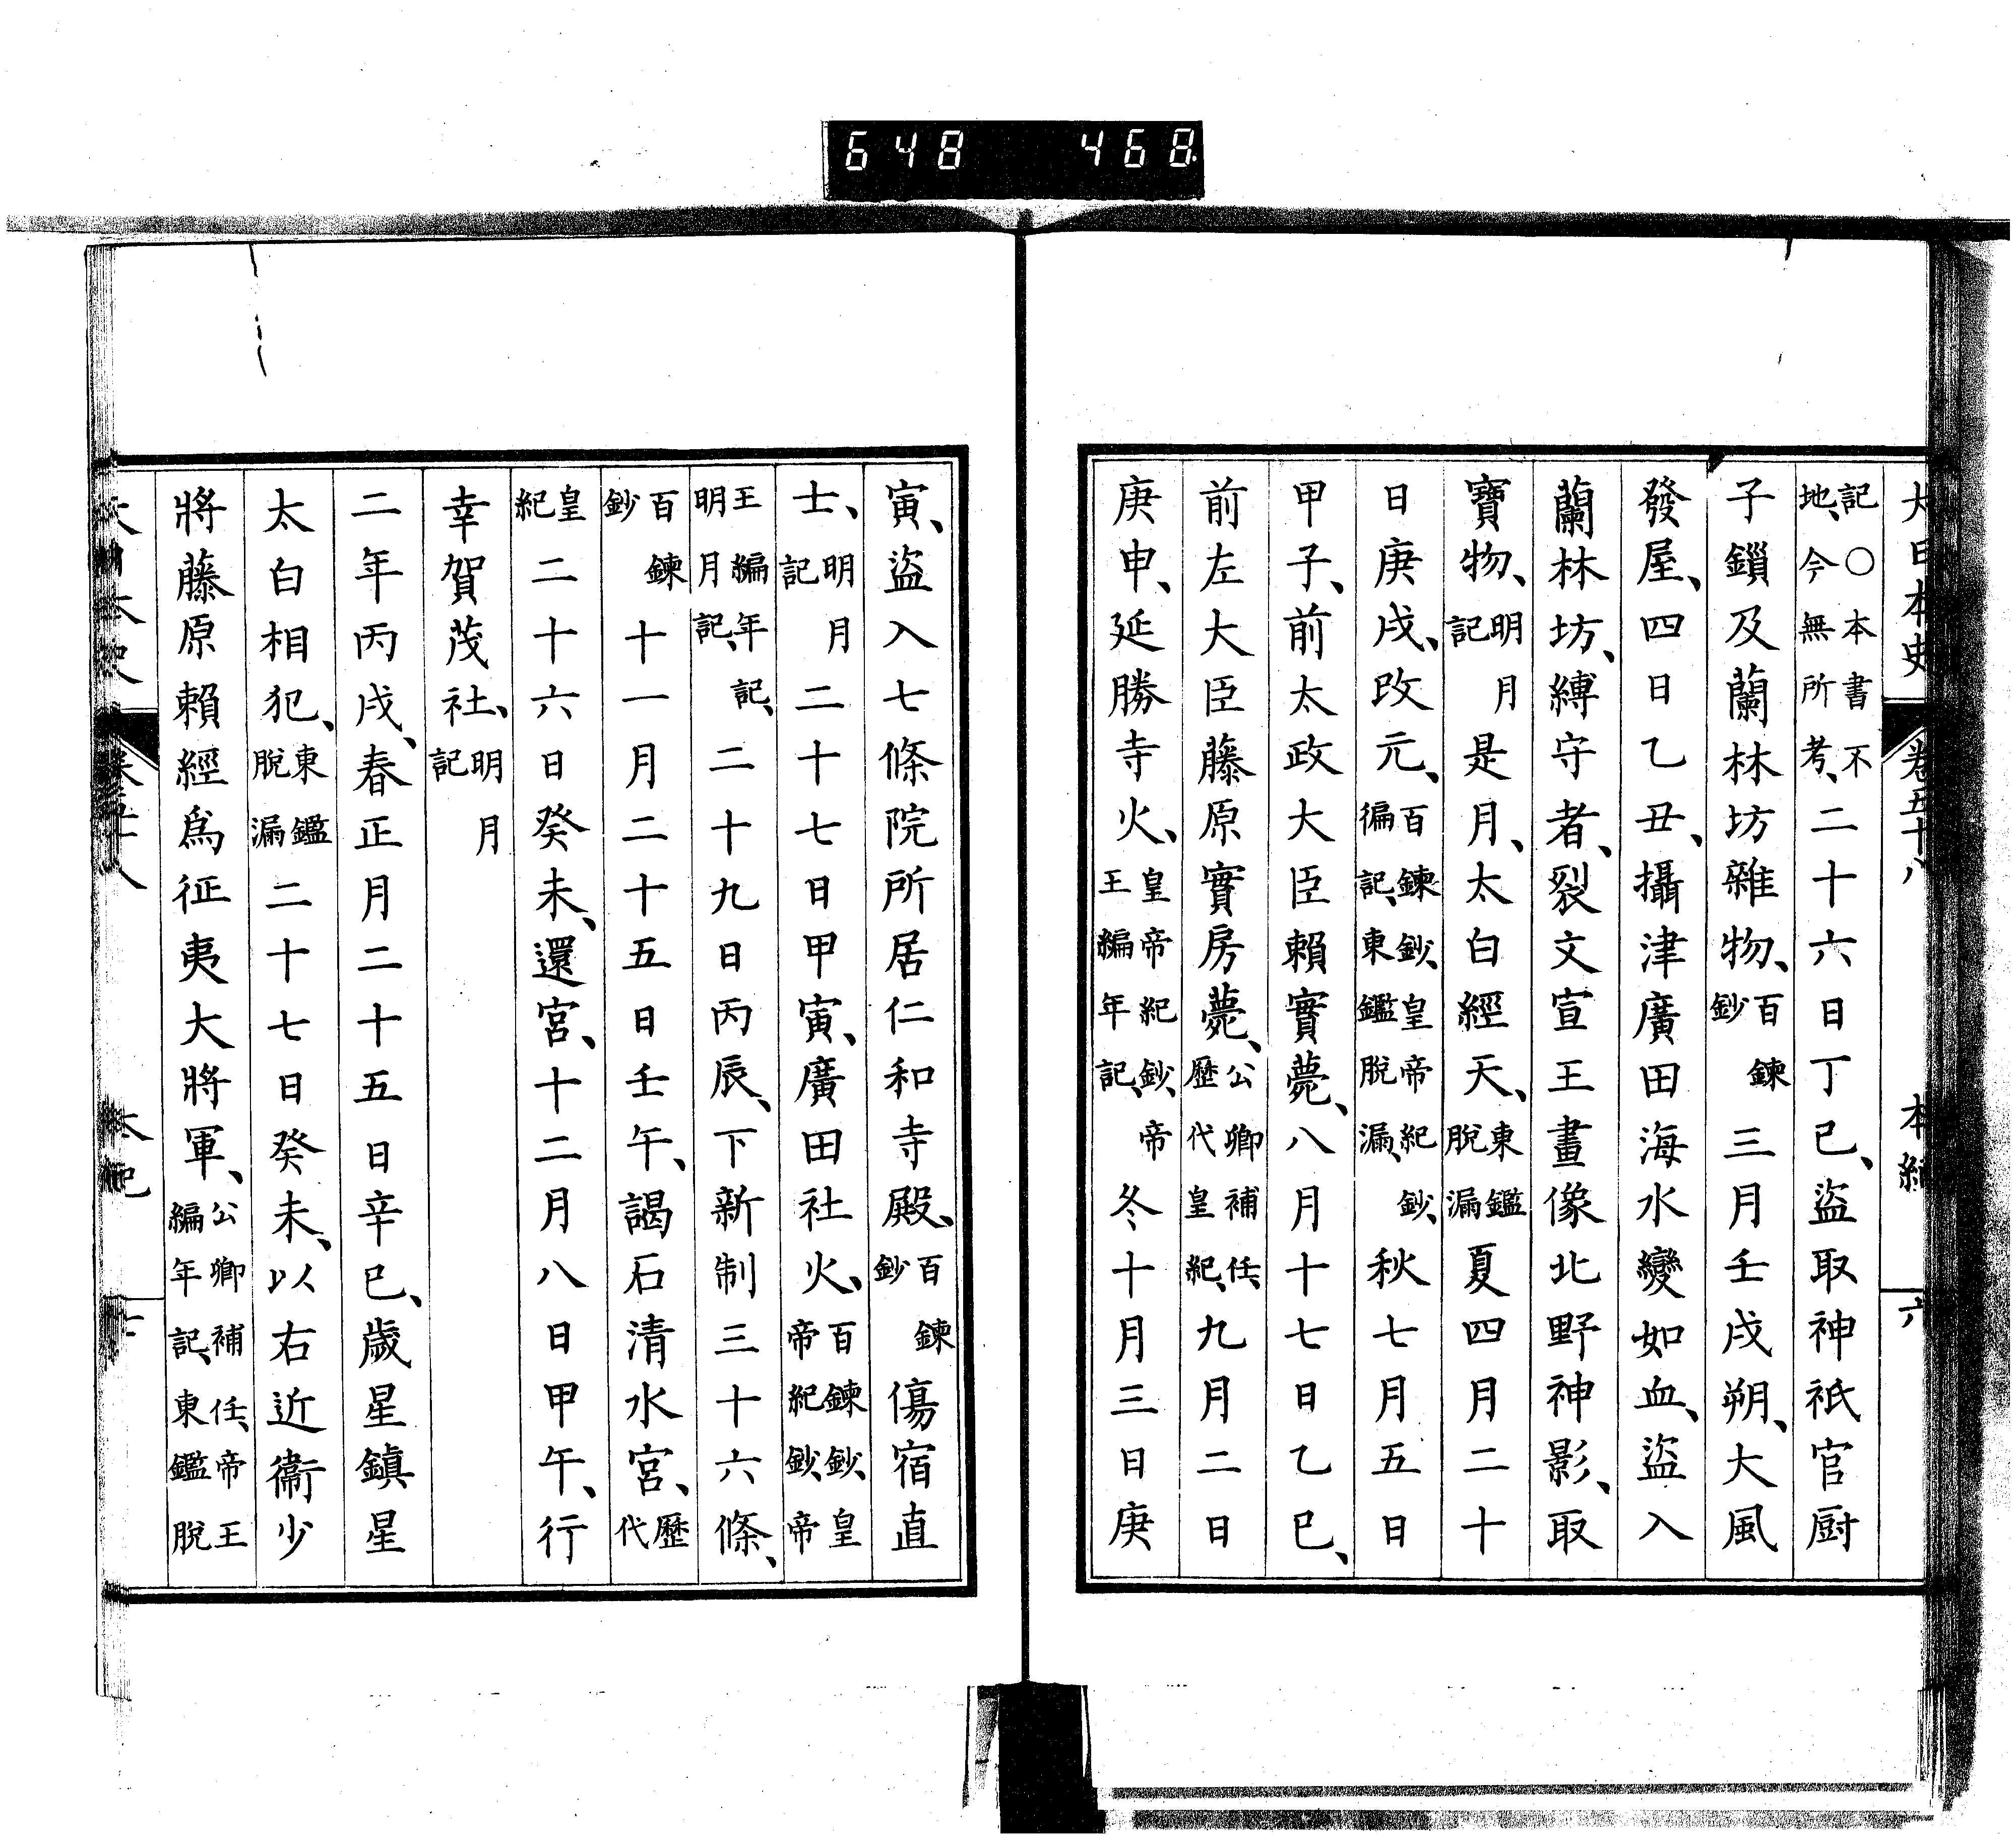 648 468
大日本史 卷五十八 本紀 六
記○本書不地、今無所考、二十六日丁巳、盜取神祇官厨
子鎖及蘭林坊雜物、百鍊鈔三月壬戌朔、大風
發屋、四日乙丑、攝津廣田海水變如血、盜入
蘭林坊、縛守者、裂文宣王畫像北野神影、取
寶物、明月記是月、太白經天、東鑑脫漏夏四月二十
日庚戌、改元、百鍊鈔、皇帝紀鈔、徧記、東鑑脫漏、秋七月五日
甲子、前太政大臣賴實薨、八月十七日乙巳、
前左大臣藤原實房薨、公卿補任、歷代皇紀、九月二日
庚申、延勝寺火、皇帝紀鈔、帝王編年記、冬十月三日庚
寅、盜入七條院所居仁和寺殿、百鍊鈔傷宿直
士、明月記二十七日甲寅、廣田社火、百鍊鈔、皇帝紀鈔、帝
王編年記、明月記、二十九日丙辰、下新制三十六條、
百鍊鈔十一月二十五日壬午、謁石清水宮、歷代
皇紀二十六日癸未、還宮、十二月八日甲午、行
幸賀茂社、明月記
二年丙戌、春正月二十五日辛巳、歲星鎮星
太白相犯、東鑑脫漏二十七日癸未、以右近衞少
將藤原賴經爲征夷大將軍、公卿補任、帝王編年記、東鑑脫